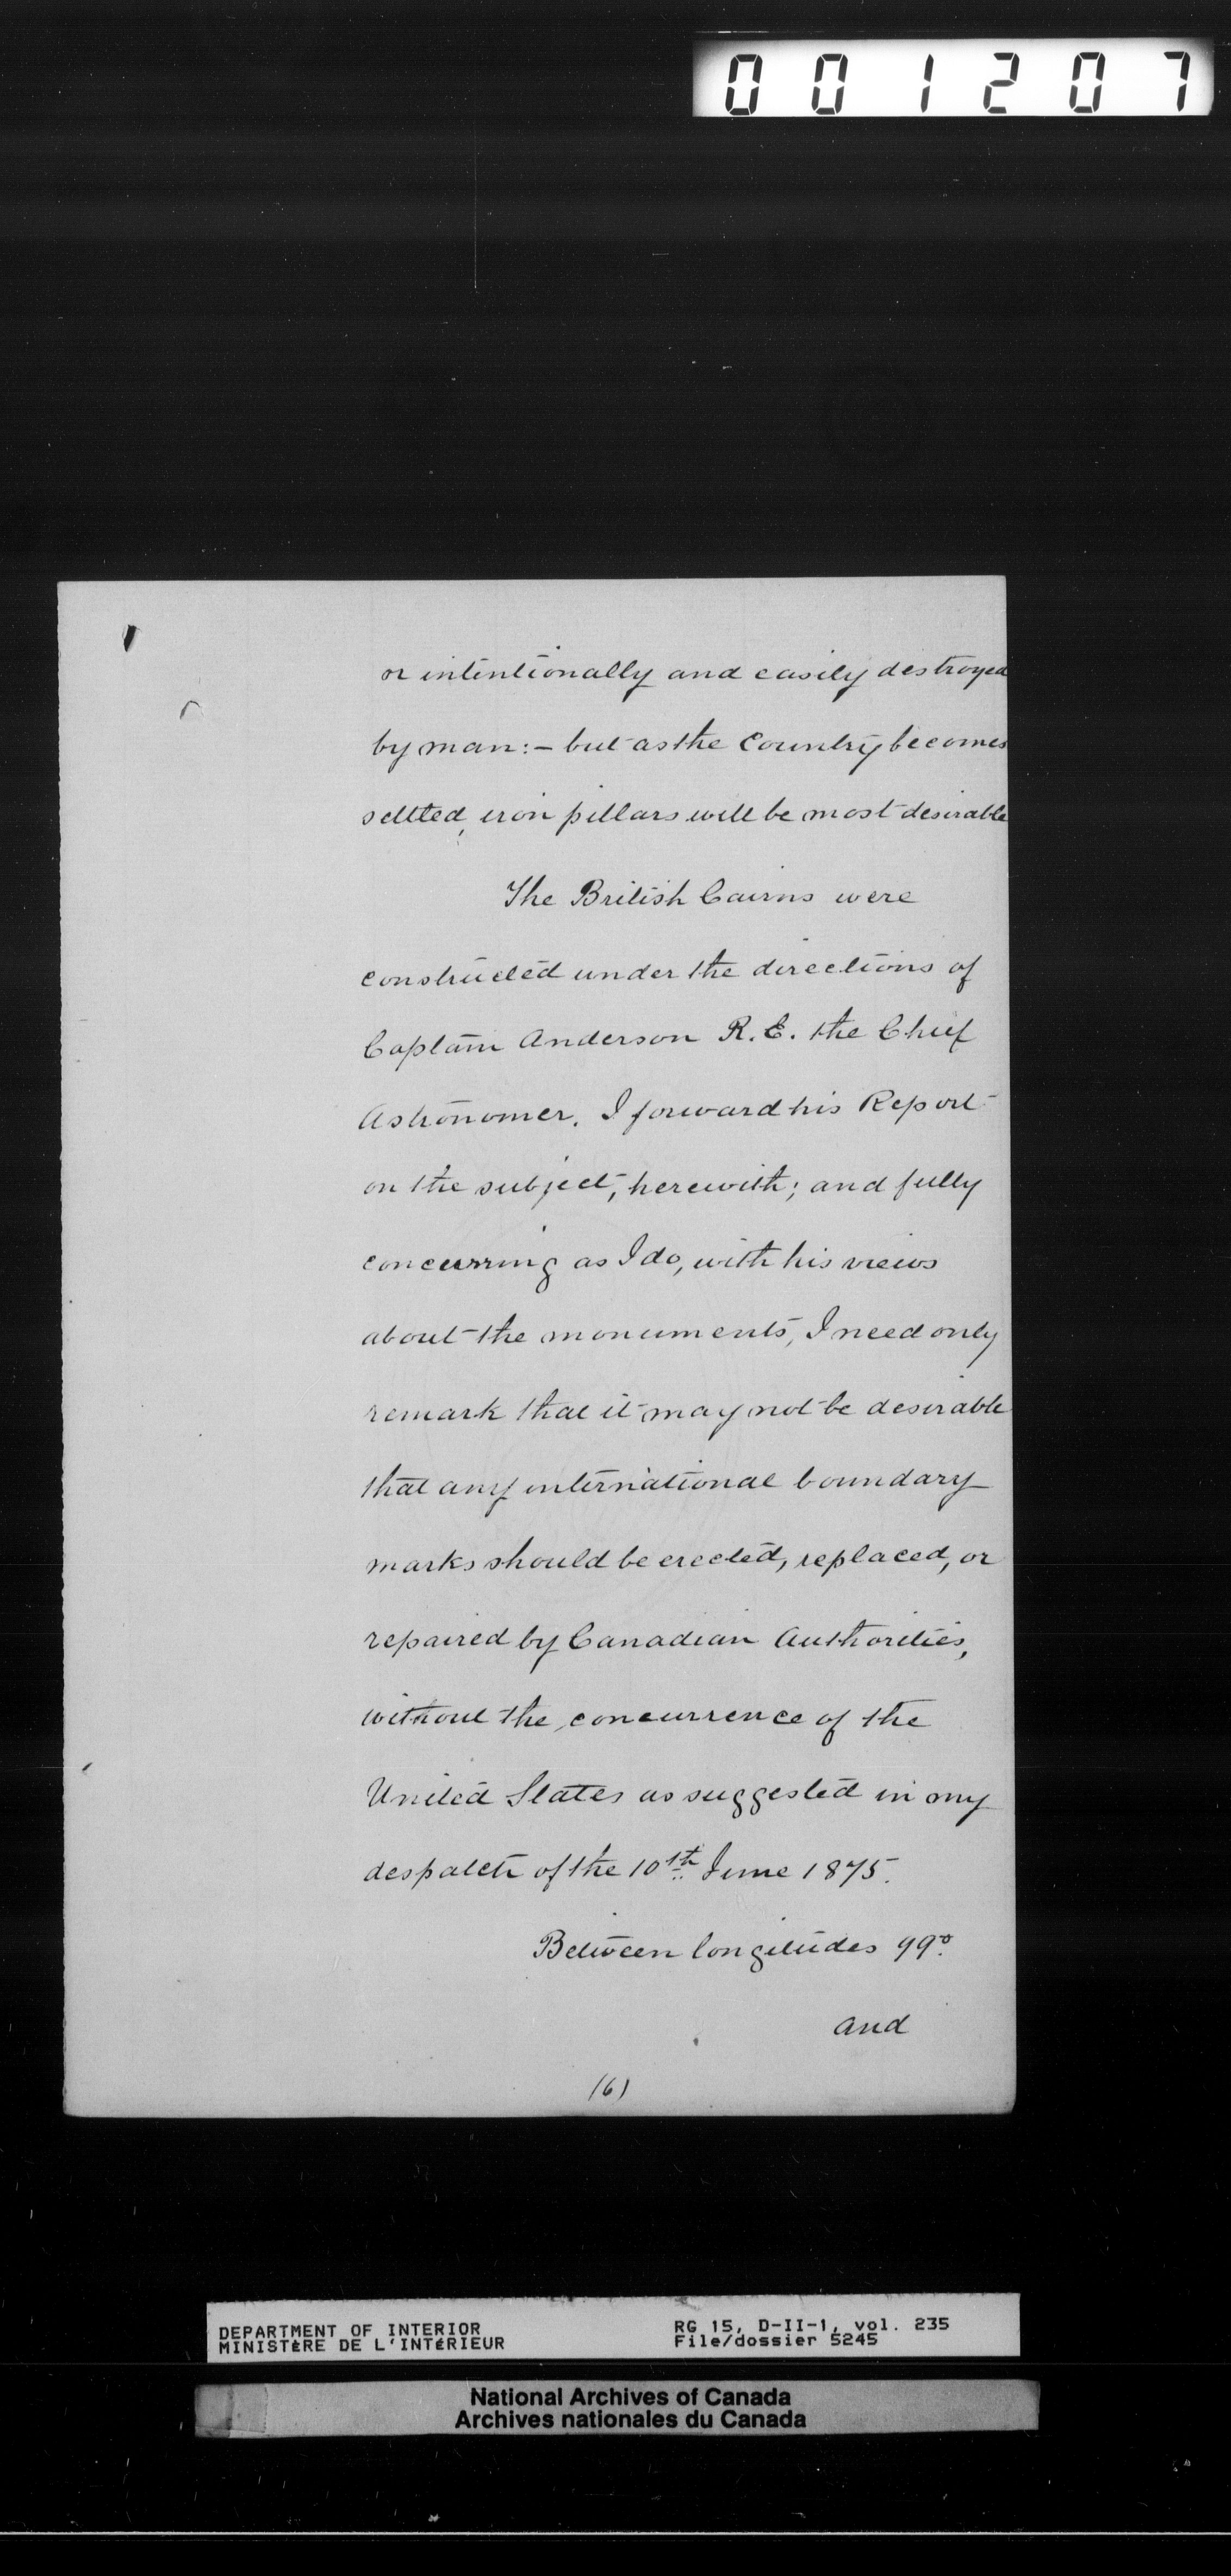 001207
or intentionally and easily destroyed
by man:- but as the Country becomes
settled, iron pillars will be most desirable
The British Cairns were
constructed under the directions of
Captain Anderson R.E. the Chief
Astronomer. I forward his Report
on the subject, herewith; and fully
concurring as I do, with his views
about the monuments, I need only
remark that it may not be desirable
that any international boundary
marks should be erected, replaced, or
repaired by Canadian Authorities,
without the concurrence of the
United States as suggested in my
despatch of the 10th June 1875.
Between longitudes 99°
and
(6)
DEPARTMENT OF INTERIOR
MINISTÈRE DE L'INTÉRIEUR
RG 15, D-II-1, vol. 235
File/dossier 5245
National Archives of Canada
Archives nationales du Canada